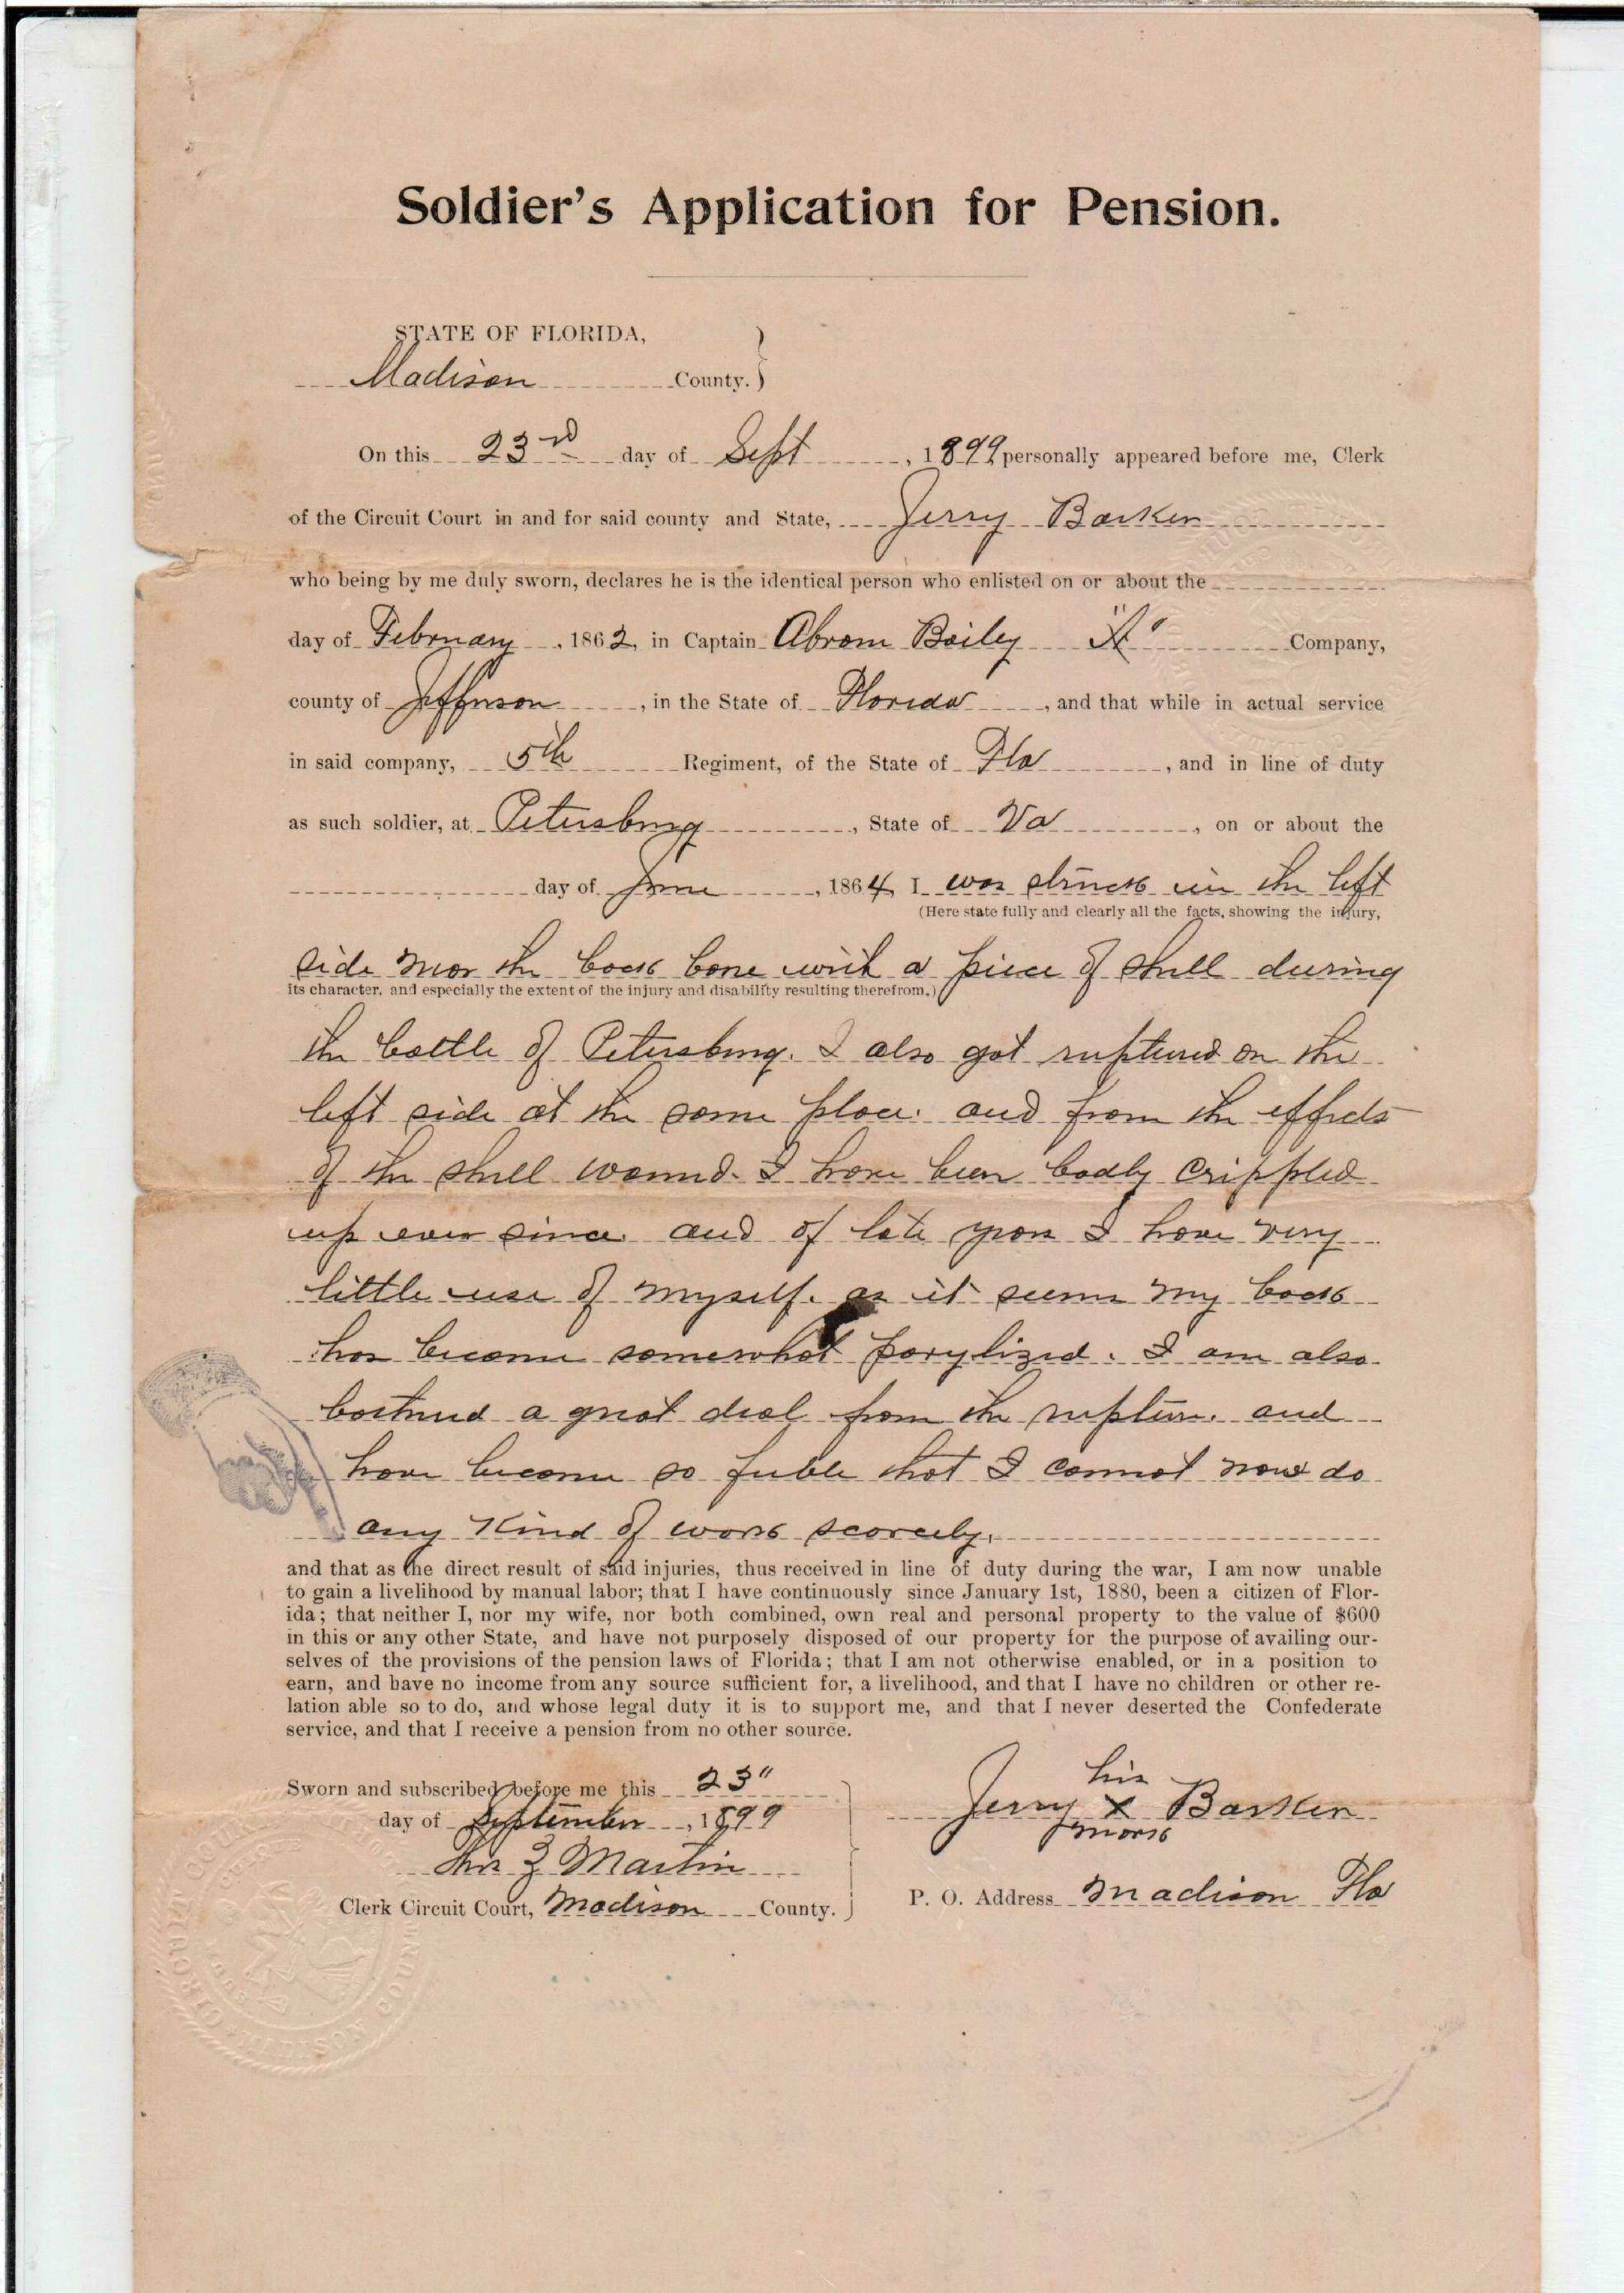 Soldier's Application for Pension.
STATE OF FLORIDA,
Madison County.
On this 23rd day of Sept, 1899, personally appeared before me, Clerk
of the Circuit Court in and for said county and State, Jerry Barker
who being by me duly sworn, declares he is the identical person who enlisted on or about the
day of February, 1862, in Captain Abram Bailey "A" Company,
county of Jefferson, in the State of Florida, and that while in actual service
in said company, 5th Regiment, of the State of Fla, and in line of duty
as such soldier, at Petersburg, State of Va, on or about the
day of June, 1864, I was struck in the left
(Here state fully and clearly all the facts, showing the injury,
side near the back bone with a piece of shell during
its character, and especially the extent of the injury and disability resulting therefrom.)
the battle of Petersburg. I also got ruptured on the
left side at the same place. and from the effects
of the shell wound. I have been badly crippled
up ever since. and of late years I have very
little use of myself. as it seems my back
has become somewhat parylized. I am also
a great deal from the rupture. and
have become so feeble that I cannot now do
any kind of work scarcely.
and that as the direct result of said injuries, thus received in line of duty during the war, I am now unable
to gain a livelihood by manual labor; that I have continuously since January 1st, 1880, been a citizen of Flor-
ida; that neither I, nor my wife, nor both combined, own real and personal property to the value of $600
in this or any other State, and have not purposely disposed of our property for the purpose of availing our-
selves of the provisions of the pension laws of Florida; that I am not otherwise enabled, or in a position to
earn, and have no income from any source sufficient for, a livelihood, and that I have no children or other re-
lation able so to do, and whose legal duty it is to support me, and that I never deserted the Confederate
service, and that I receive a pension from no other source.
Sworn and subscribed before me this 23"
day of September, 1899
Martin
Clerk Circuit Court, Madison County.
his
Jerry X Barker
mark
P. O. Address Madison Fla